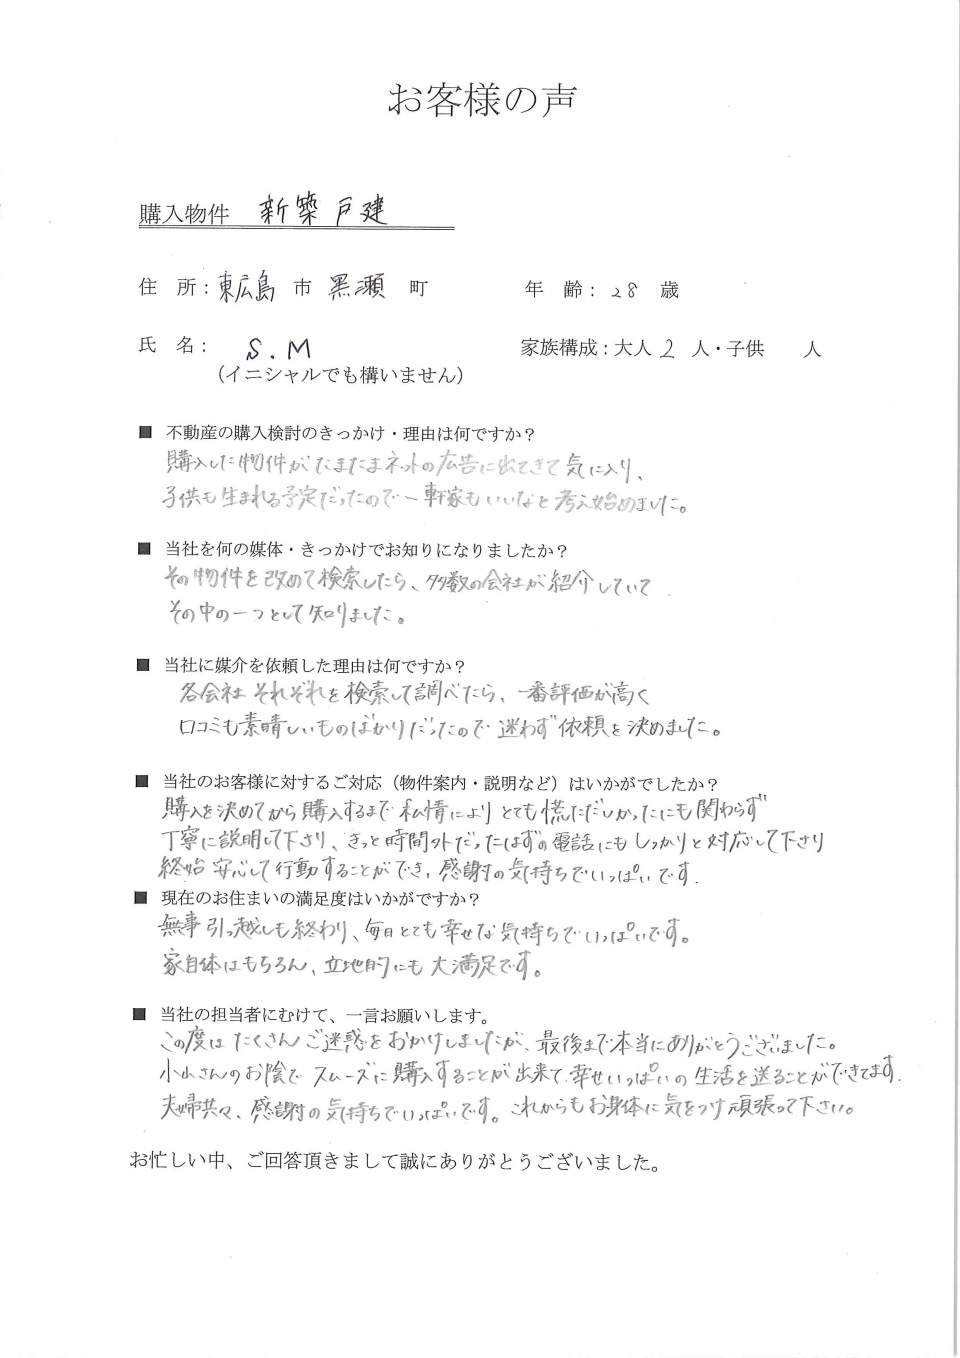 お客様の声
購入物件 新築戸建
住 所：東広島 市 黒瀬 町 年 齢：28 歳
氏 名： S.M 家族構成：大人 2 人・子供 人
（イニシャルでも構いません）
■ 不動産の購入検討のきっかけ・理由は何ですか？
購入した物件がたまたまネットの広告に出てきて気に入り、
子供も生まれる予定だったので一軒家もいいなと考え始めました。
■ 当社を何の媒体・きっかけでお知りになりましたか？
その物件を改めて検索したら、多数の会社が紹介していて
その中の一つとして知りました。
■ 当社に媒介を依頼した理由は何ですか？
各会社それぞれを検索して調べたら、一番評価が高く
口コミも素晴しいものばかりだったので迷わず依頼を決めました。
■ 当社のお客様に対するご対応（物件案内・説明など）はいかがでしたか？
購入を決めてから購入するまで私情によりとても慌ただしかったにも関わらず
丁寧に説明して下さり、きっと時間外だったはずの電話にもしっかりと対応して下さり
終始安心して行動することができ、感謝の気持ちでいっぱいです.
■ 現在のお住まいの満足度はいかがですか？
無事引っ越しも終わり、毎日とても幸せな気持ちでいっぱいです。
家自体はもちろん、立地的にも大満足です。
■ 当社の担当者にむけて、一言お願いします。
この度はたくさんご迷惑をおかけしましたが、最後まで本当にありがとうございました。
小山さんのお陰でスムーズに購入することが出来て、幸せいっぱいの生活を送ることができてます.
夫婦共々、感謝の気持ちでいっぱいです。これからもお身体に気をつけ頑張って下さい。
お忙しい中、ご回答頂きまして誠にありがとうございました。